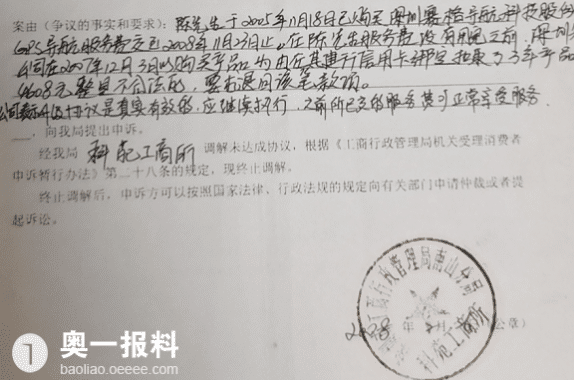 案由(争议的事实和要求):陈先生于2005年11月18日已购买深圳赛格导航科技股份
GPS导航服务费交已2008年11月23日止。在陈先生服务费没有用完之前,深圳
公司在2007年12月3日以购买产品为由在其建行信用卡绑定扣取了3年产品
4608元整是不合法的,要求退回该笔款项。
公司表示,协议是真实有效的,应继续执行,之前所已交的服务费可正常享受服务。
,向我局提出申诉。
经我局 科苑工商所 调解未达成协议,根据《工商行政管理局机关受理消费者
申诉暂行办法》第二十八条的规定,现终止调解。
终止调解后,申诉方可以按照国家法律、行政法规的规定向有关部门申请仲裁或者提
起诉讼。
工商行政管理局南山分局
科苑工商所
年 月 (公章)
奥一报料
baoliao.oeeee.com